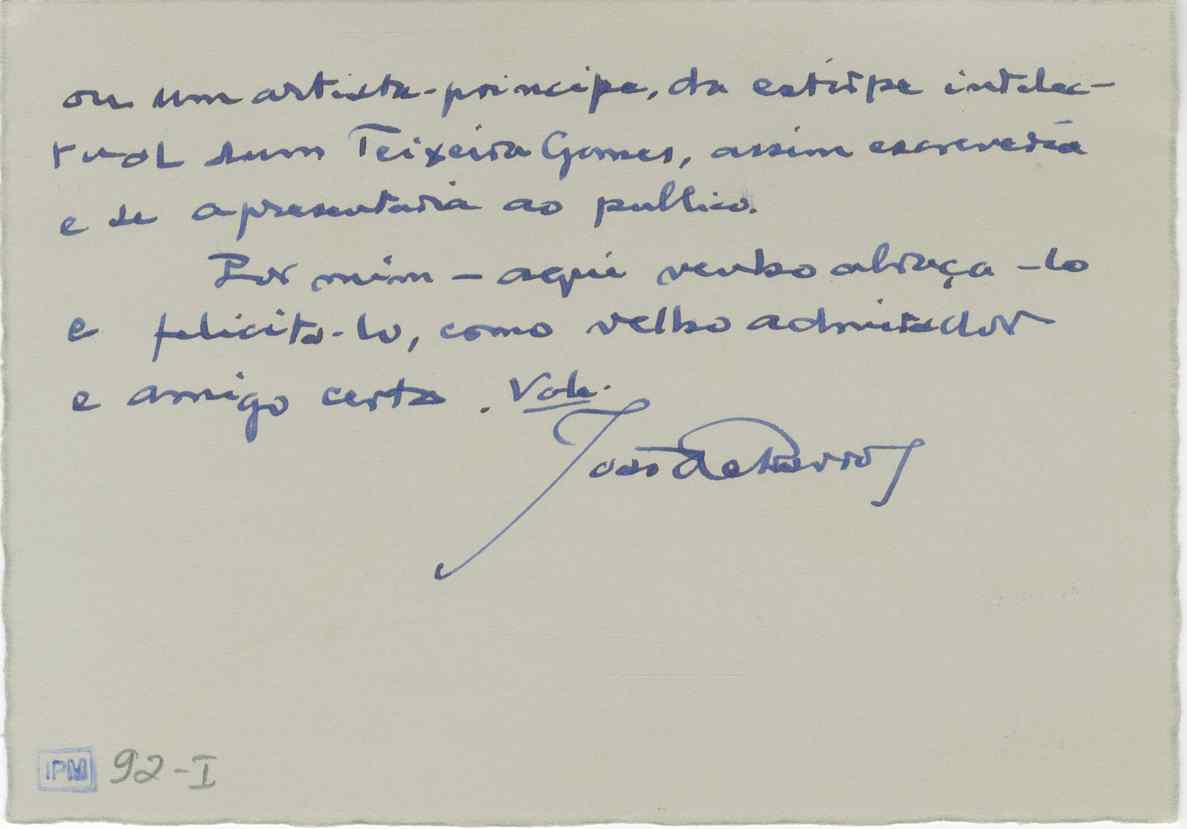 ou um artista-principe, da estirpe intelec-
tual dum Teixeira Gomes, assim escreveria
e se apresentaria ao publico.
Por mim - aqui venho abraça-lo
e felicita-lo, como velho admirador
e amigo certo. Vale.
João de Barros
IPM 92-I